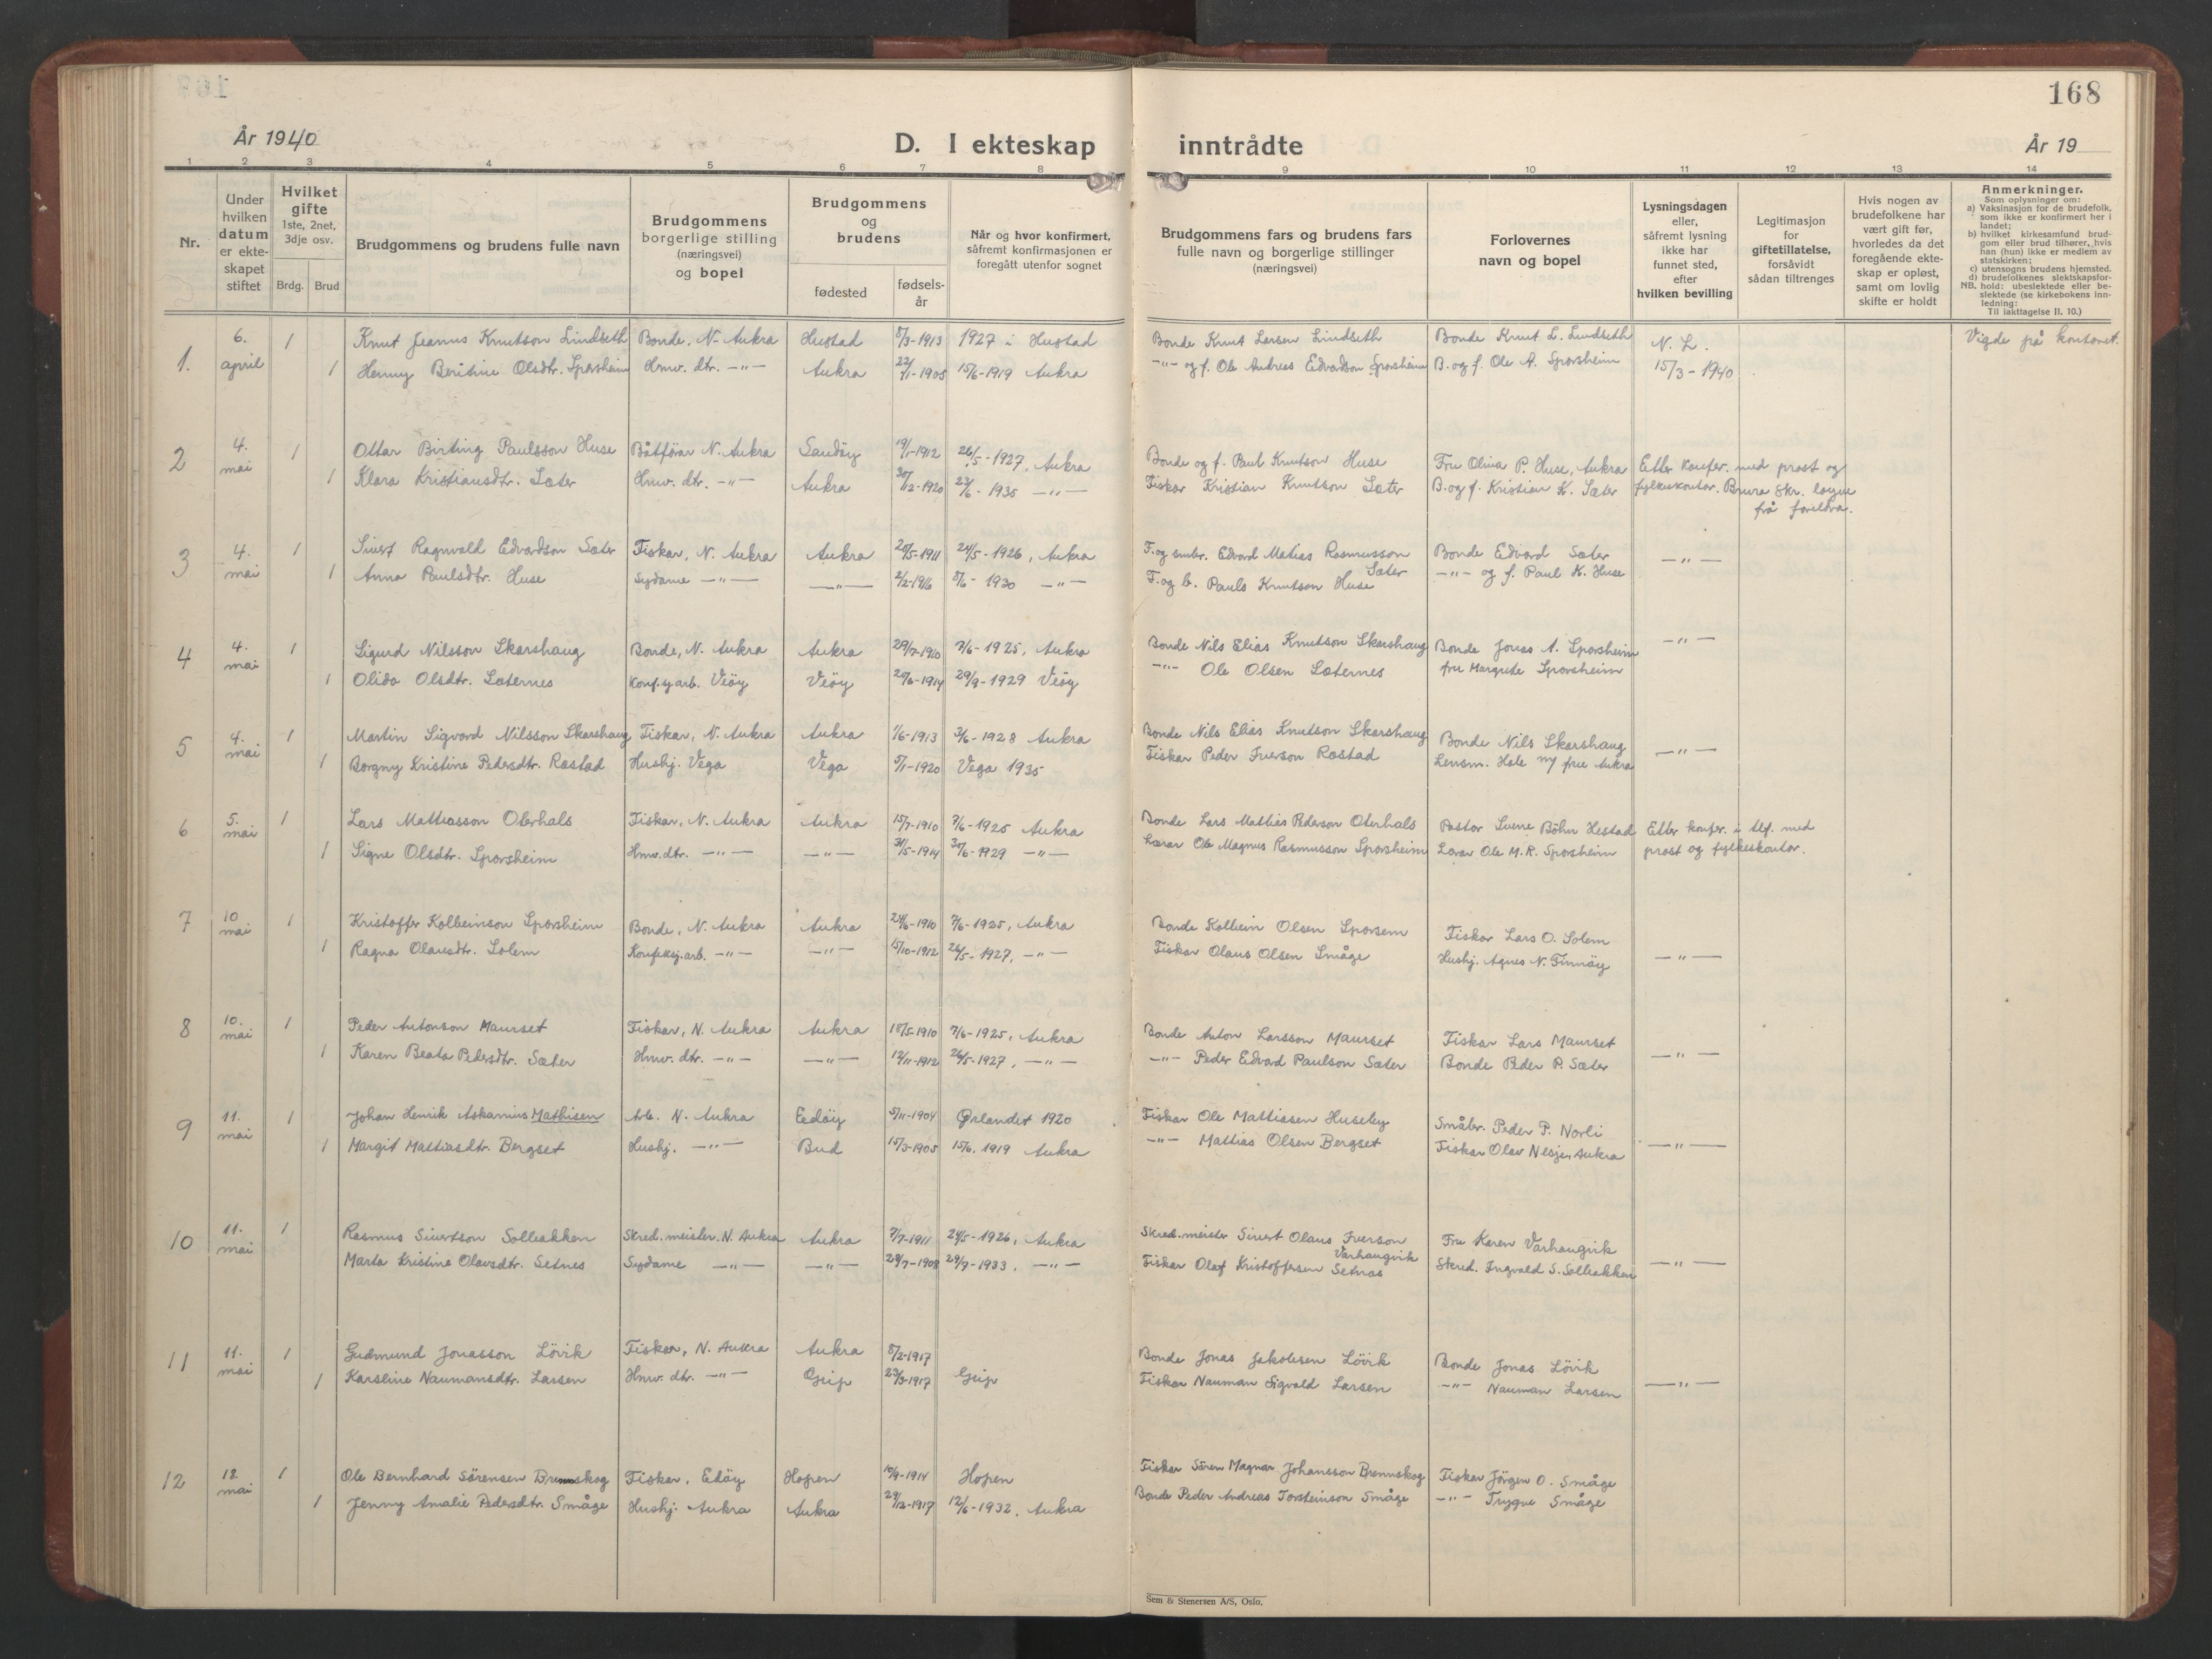 168
År 1940
D. I ekteskap inntrådte
År 19
1 2 3 4 5 6 7 8 9 10 11 12 13 14
Nr.
Under
hvilken
datum
er ekte-
skapet
stiftet
Hvilket
gifte
1ste, 2net,
3dje osv.
Brdg. Brud
Brudgommens og brudens fulle navn
Brudgommens
borgerlige stilling
(næringsvei)
og bopel
Brudgommens
og
brudens
fødested
fødsels-
år
Når og hvor konfirmert,
såfremt konfirmasjonen er
foregått utenfor sognet
Brudgommens fars og brudens fars
fulle navn og borgerlige stillinger
(næringsvei)
Forlovernes
navn og bopel
Lysningsdagen
eller,
såfremt lysning
ikke har
funnet sted,
efter
hvilken bevilling
Legitimasjon
for
giftetillatelse,
forsåvidt
sådan tiltrenges
Hvis nogen av
brudefolkene har
vært gift før,
hvorledes da det
foregående ekte-
skap er opløst,
samt om lovlig
skifte er holdt
Anmerkninger.
Som oplysninger om:
a) Vaksinasjon for de brudefolk,
som ikke er konfirmert her i
landet;
b) hvilket kirkesamfund brud-
gom eller brud tilhører, hvis
han (hun) ikke er medlem av
statskirken;
c) utensogns brudens hjemsted.
d) brudefolkenes slektskapsfor-
NB. hold: ubeslektede eller be-
slektede (se kirkebokens inn-
ledning:
Til iakttagelse II. 10.)
1. 6. april 1 Knut Jeanus Knutson Lindseth Bonde, N. Aukra Hustad 8/3-1913 1927 i Hustad Bonde Knut Larsen Lindseth Bonde Knut L. Lindseth N. L. Vigde på kontoret.
1 Henny Beritine Olsdtr. Sporsheim Hmv. dtr. -"- Aukra 22/1-1905 15/6-1919 Aukra -"- og f. Ole Andreas Edvardson Sporsheim B. og f. Ole A. Sporsheim 15/3-1940
2 4. mai 1 Ottar Birting Paulsson Huse Båtförar N. Aukra Sandöy 19/1-1912 26/5-1927, Aukra Bonde og f. Paul Knutson Huse Fru Olina P. Huse, Aukra Etter konfer. med prost og
1 Klara Kristiansdtr. Sæter Hmv. dtr. -"- Aukra 30/12-1920 23/6-1935 -"- Fiskar Kristian Knutson Sæter B. og f. Kristian K. Sæter fylkeskontor. Brura skr. løyve
frå foreldra.
3 4. mai 1 Sivert Ragnvald Edvardson Sæter Fiskar, N. Aukra Aukra 29/5-1911 24/5-1926, Aukra F. og småbr. Edvard Matias Rasmusson Sæter Bonde Edvard Sæter -"-
1 Anna Paulsdtr. Huse Sydame -"- -"- 2/2-1916 8/6-1930 -"- F. og b. Pauls Knutson Huse -"- og f. Paul K. Huse
4 4. mai 1 Sigurd Nilsson Skarshaug Bonde, N. Aukra Aukra 29/7-1910 7/6-1925, Aukra Bonde Nils Elias Knutson Skarshaug Bonde Jonas A. Sporsheim -"-
1 Olida Olsdtr. Sæternes Konf.syarb. Veöy Veöy 20/6-1914 29/9-1929 Veöy -"- Ole Olsen Sæternes fru Margrete Sporsheim
5 4. mai 1 Martin Sigvard Nilsson Skarshaug Fiskar, N. Aukra Aukra 1/6-1913 3/6-1928 Aukra Bonde Nils Elias Knutson Skarshaug Bonde Nils Skarshaug -"-
1 Borgny Kristine Pedersdtr. Rostad Hushj. Vega Vega 5/1-1920 Vega 1935 Fiskar Peder Iverson Rostad Lensm. Hole m/ frue Aukra
6 5. mai 1 Lars Mattiasson Oterhals Fiskar, N. Aukra Aukra 15/7-1910 7/6-1925 Aukra Bonde Lars Mattias Pederson Oterhals Pastor Sverre Böhn Hestad Etter konfer. i tlf. med
1 Signe Olsdtr. Sporsheim Hmv. dtr. -"- -"- 31/5-1914 30/6-1929 -"- Lærar Ole Magnus Rasmusson Sporsheim Lærar Ole M. R. Sporsheim prost og fylkeskontor.
7 10 mai 1 Kristoffer Kolbeinson Sporsheim Bonde, N. Aukra Aukra 24/6-1910 7/6-1925, Aukra Bonde Kolbein Olsen Sporsem Fiskar Lars O. Solem -"-
1 Ragna Olausdtr. Solem Konfeksj.arb. -"- -"- 15/10-1912 26/5-1927, -"- Fiskar Olaus Olsen Småge Hushj. Agnes N. Finnöy
8 10. mai 1 Peder Antonson Maurset Fiskar, N. Aukra Aukra 18/5-1910 7/6-1925, Aukra Bonde Anton Larsson Maurset Fiskar Lars Maurset -"-
1 Karen Beata Pedersdtr. Sæter Hmv. dtr. -"- -"- 12/11-1912 26/5-1927, -"- -"- Peder Edvard Paulson Sæter Bonde Peder P. Sæter
9 11. mai 1 Johan Henrik Askanius Mathisen Arb. N. Aukra Eedöy 5/11-1904 Ørlandet 1920 Fiskar Ole Mattiasen Huseby Småbr. Peder P. Norli -"-
1 Margit Mattiasdtr. Bergset Hushj. -"- Bud 15/3-1905 15/6. 1919 Aukra -"- Mattias Olsen Bergset Fiskar Olav Nesje, Aukra
10 11. mai 1 Rasmus Sivertson Solbakken Skred.meister. N. Aukra Aukra 7/7-1911 24/5-1926, Aukra Skred.meister Sivert Olaus Iverson Varhaugvik Fru Karen Varhaugvik -"-
Marta Kristine Olavsdtr. Setnes Sydame -"- -"- 29/7-1908 29/9-1933. -"- Fiskar Olaf Kristoffersen Setnes Skred. Ingvald S. Solbakken
11 11. mai 1 Gudmund Jonasson Lövik Fiskar, N. Aukra Aukra 8/2-1917 Bonde Jonas Jakobsen Lövik Bonde Jonas Lövik -"-
1 Karsline Naumansdtr. Larsen Hmv. dtr. -"- Grip 23/3-1917 Grip Fiskar Nauman Sigvald Larsen -"- Nauman Larsen
12 12 mai 1 Ole Bernhard Sörensen Brennskog Fiskar, Edöy Hopen 10/9-1914 Hopen Fiskar Sören Magnar Johansson Brennskog Fiskar Jörgen O. Småge
1 Jenny Amalie Pedersdtr. Småge Hushj. Aukra Aukra 29/12-1917 12/6-1932, Aukra Bonde Peder Andreas Torsteinson Småge -"- Trygve Småge
Sem & Stenersen A/S, Oslo.